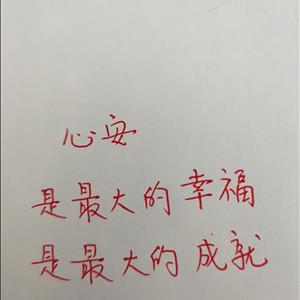 心安
是最大的幸福
是最大的成就